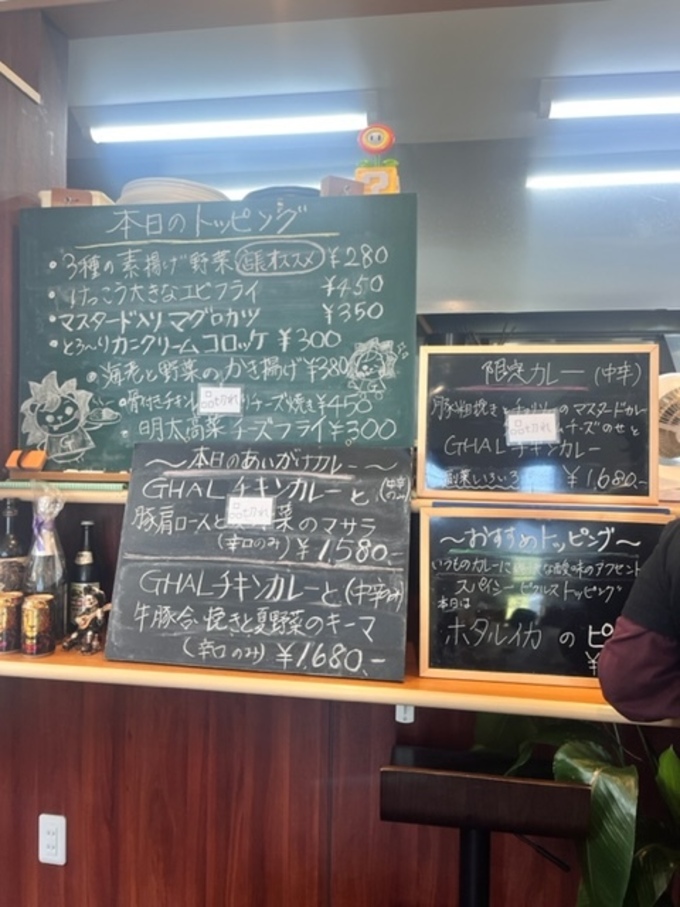 本日のトッピング
・3種の素揚げ野菜 店長オススメ ¥280
・けっこう大きなエビフライ ¥450
・マスタード入りマグロカツ ¥350
・とろ〜りカニクリームコロッケ ¥300
・海老と野菜のかき揚げ ¥380
・骨付きチキン 品切れ チーズ焼き ¥450
明太高菜チーズフライ ¥300
G
〜本日のあいがけカレー〜
GHALチキンカレーと
豚肩ロースと 品切れ 菜のマサラ
(辛口のみ) ¥1,580.-
GHALチキンカレーと(中辛のみ)
牛豚合い挽きと夏野菜のキーマ
(辛口のみ) ¥1,680.-
限定カレー (中辛)
豚粗挽きと のマスタードカレー
品切れ チーズのせと
GHALチキンカレー
副菜いろいろ ¥1,680.-
〜おすすめトッピング〜
いつものカレーに な酸味のアクセント
スパイシーピクルストッピング
本日は
ホタルイカ の ピ
¥